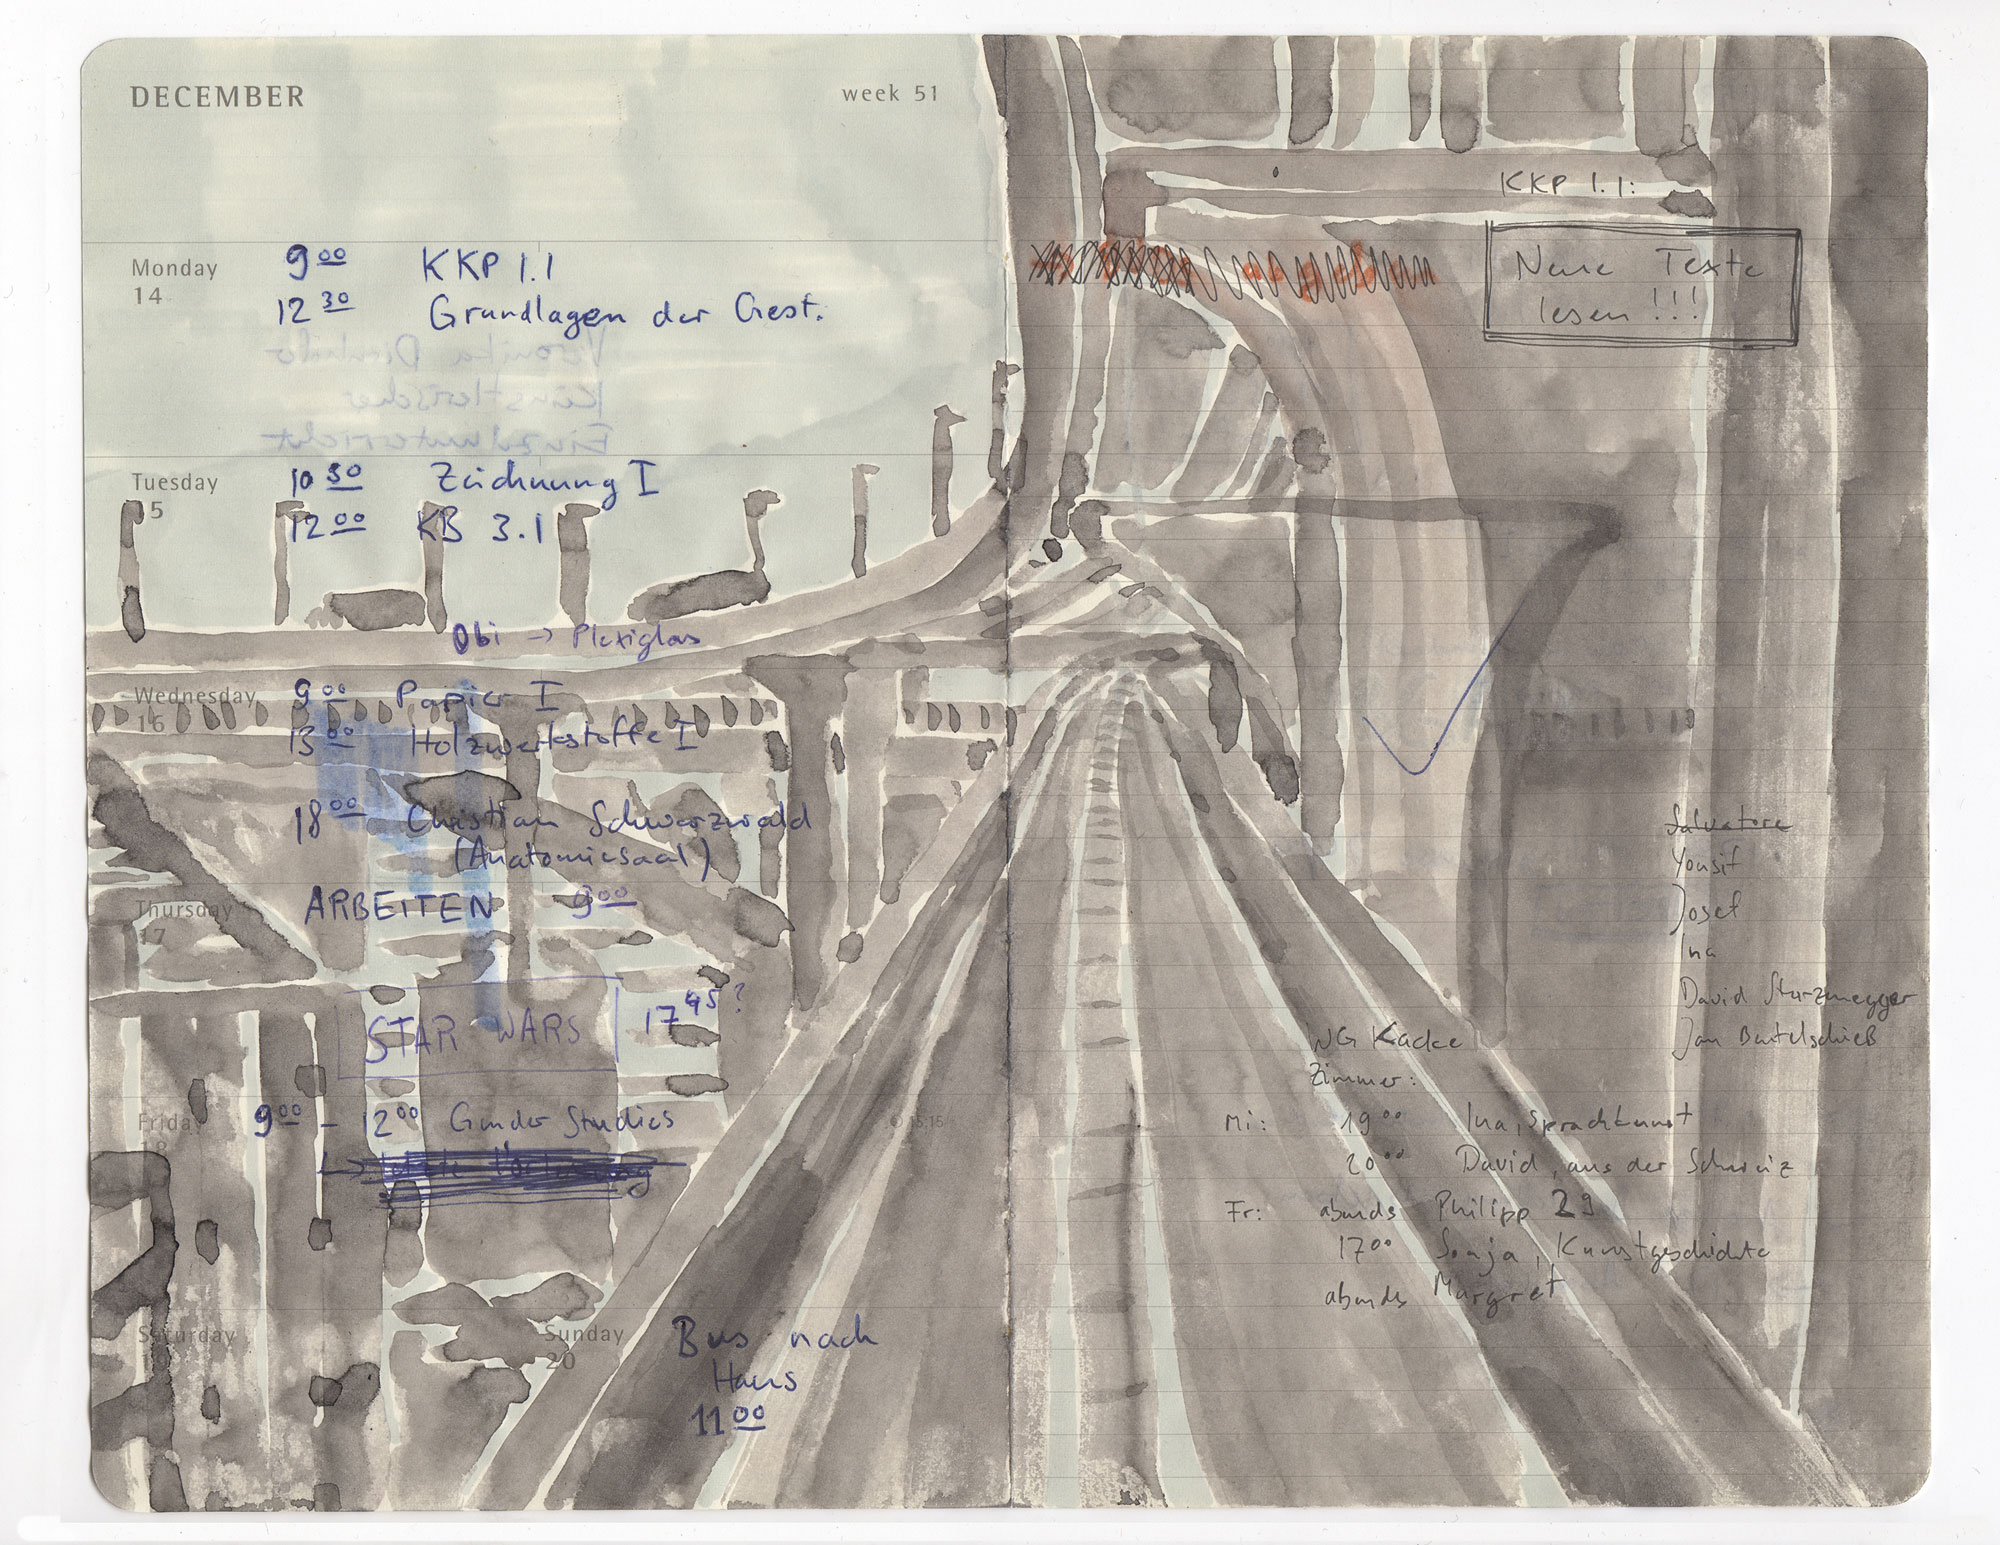 DECEMBER
week 51
Monday
14
9⁰⁰ KKP 1.1
12³⁰ Grundlagen der Gest.
Tuesday
15
10³⁰ Zeichnung I
12⁰⁰ KB 3.1
Obi → Plexiglas
Wednesday
16
9⁰⁰ Papier I
13⁰⁰ Holzwerkstoffe I
18⁰⁰ Christian Schwarzwald
(Anatomiesaal)
Thursday
17
ARBEITEN 9⁰⁰
STAR WARS 17⁴⁵?
Friday
18
9⁰⁰ - 12⁰⁰ Gender Studies
Saturday
Sunday
20
Bus nach
Haus
11⁰⁰
KKP 1.1:
Neue Texte
lesen!!!
Salvatore
Yousif
Josef
Ina
David Sturzenegger
Jan
WG Kacke
Zimmer:
Mi: 19⁰⁰ Ina, Sprachkunst
20⁰⁰ David, aus der Schweiz
Fr: abends Philipp 29
17⁰⁰ Sonja, Kunstgeschichte
abends Margret